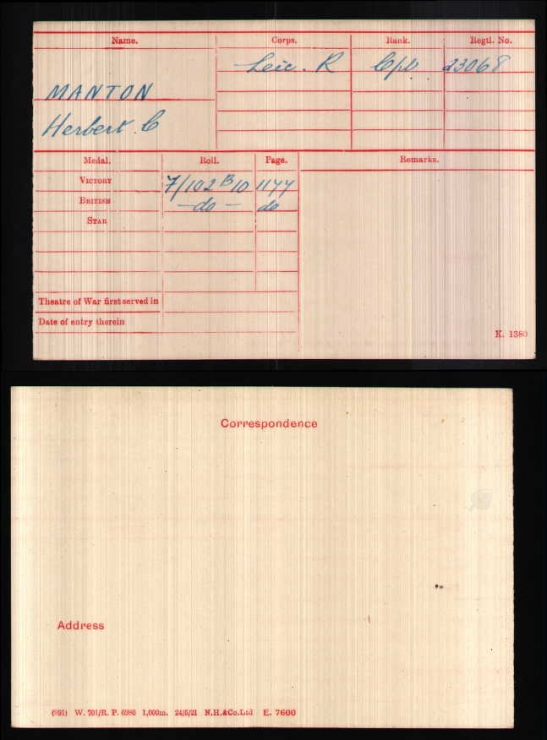 Name. Corps. Rank. Regtl. No.
Leic. R Cpl. 23068
MANTON
Herbert C
Medal. Roll. Page. Remarks.
Victory 7/102 B10 1177
British —do— do
Star
Theatre of War first served in
Date of entry therein
K. 1380
Correspondence
Address
W. 791/R. P. 6980 1,000m. 24/5/21 N.H.&Co.Ltd E. 7600